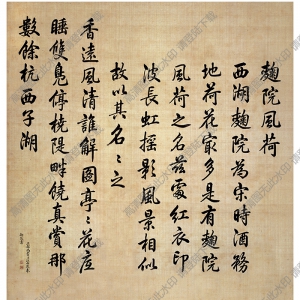 麯院風荷
西湖麯院為宋時酒務
地荷花最多是有麯院
風荷之名茲處紅衣印
波長虹搖影風景相似
故以其名々之
香遠風清誰解圖亭々花底
睡雙鳧停橈隄畔饒真賞那
數餘杭西子湖